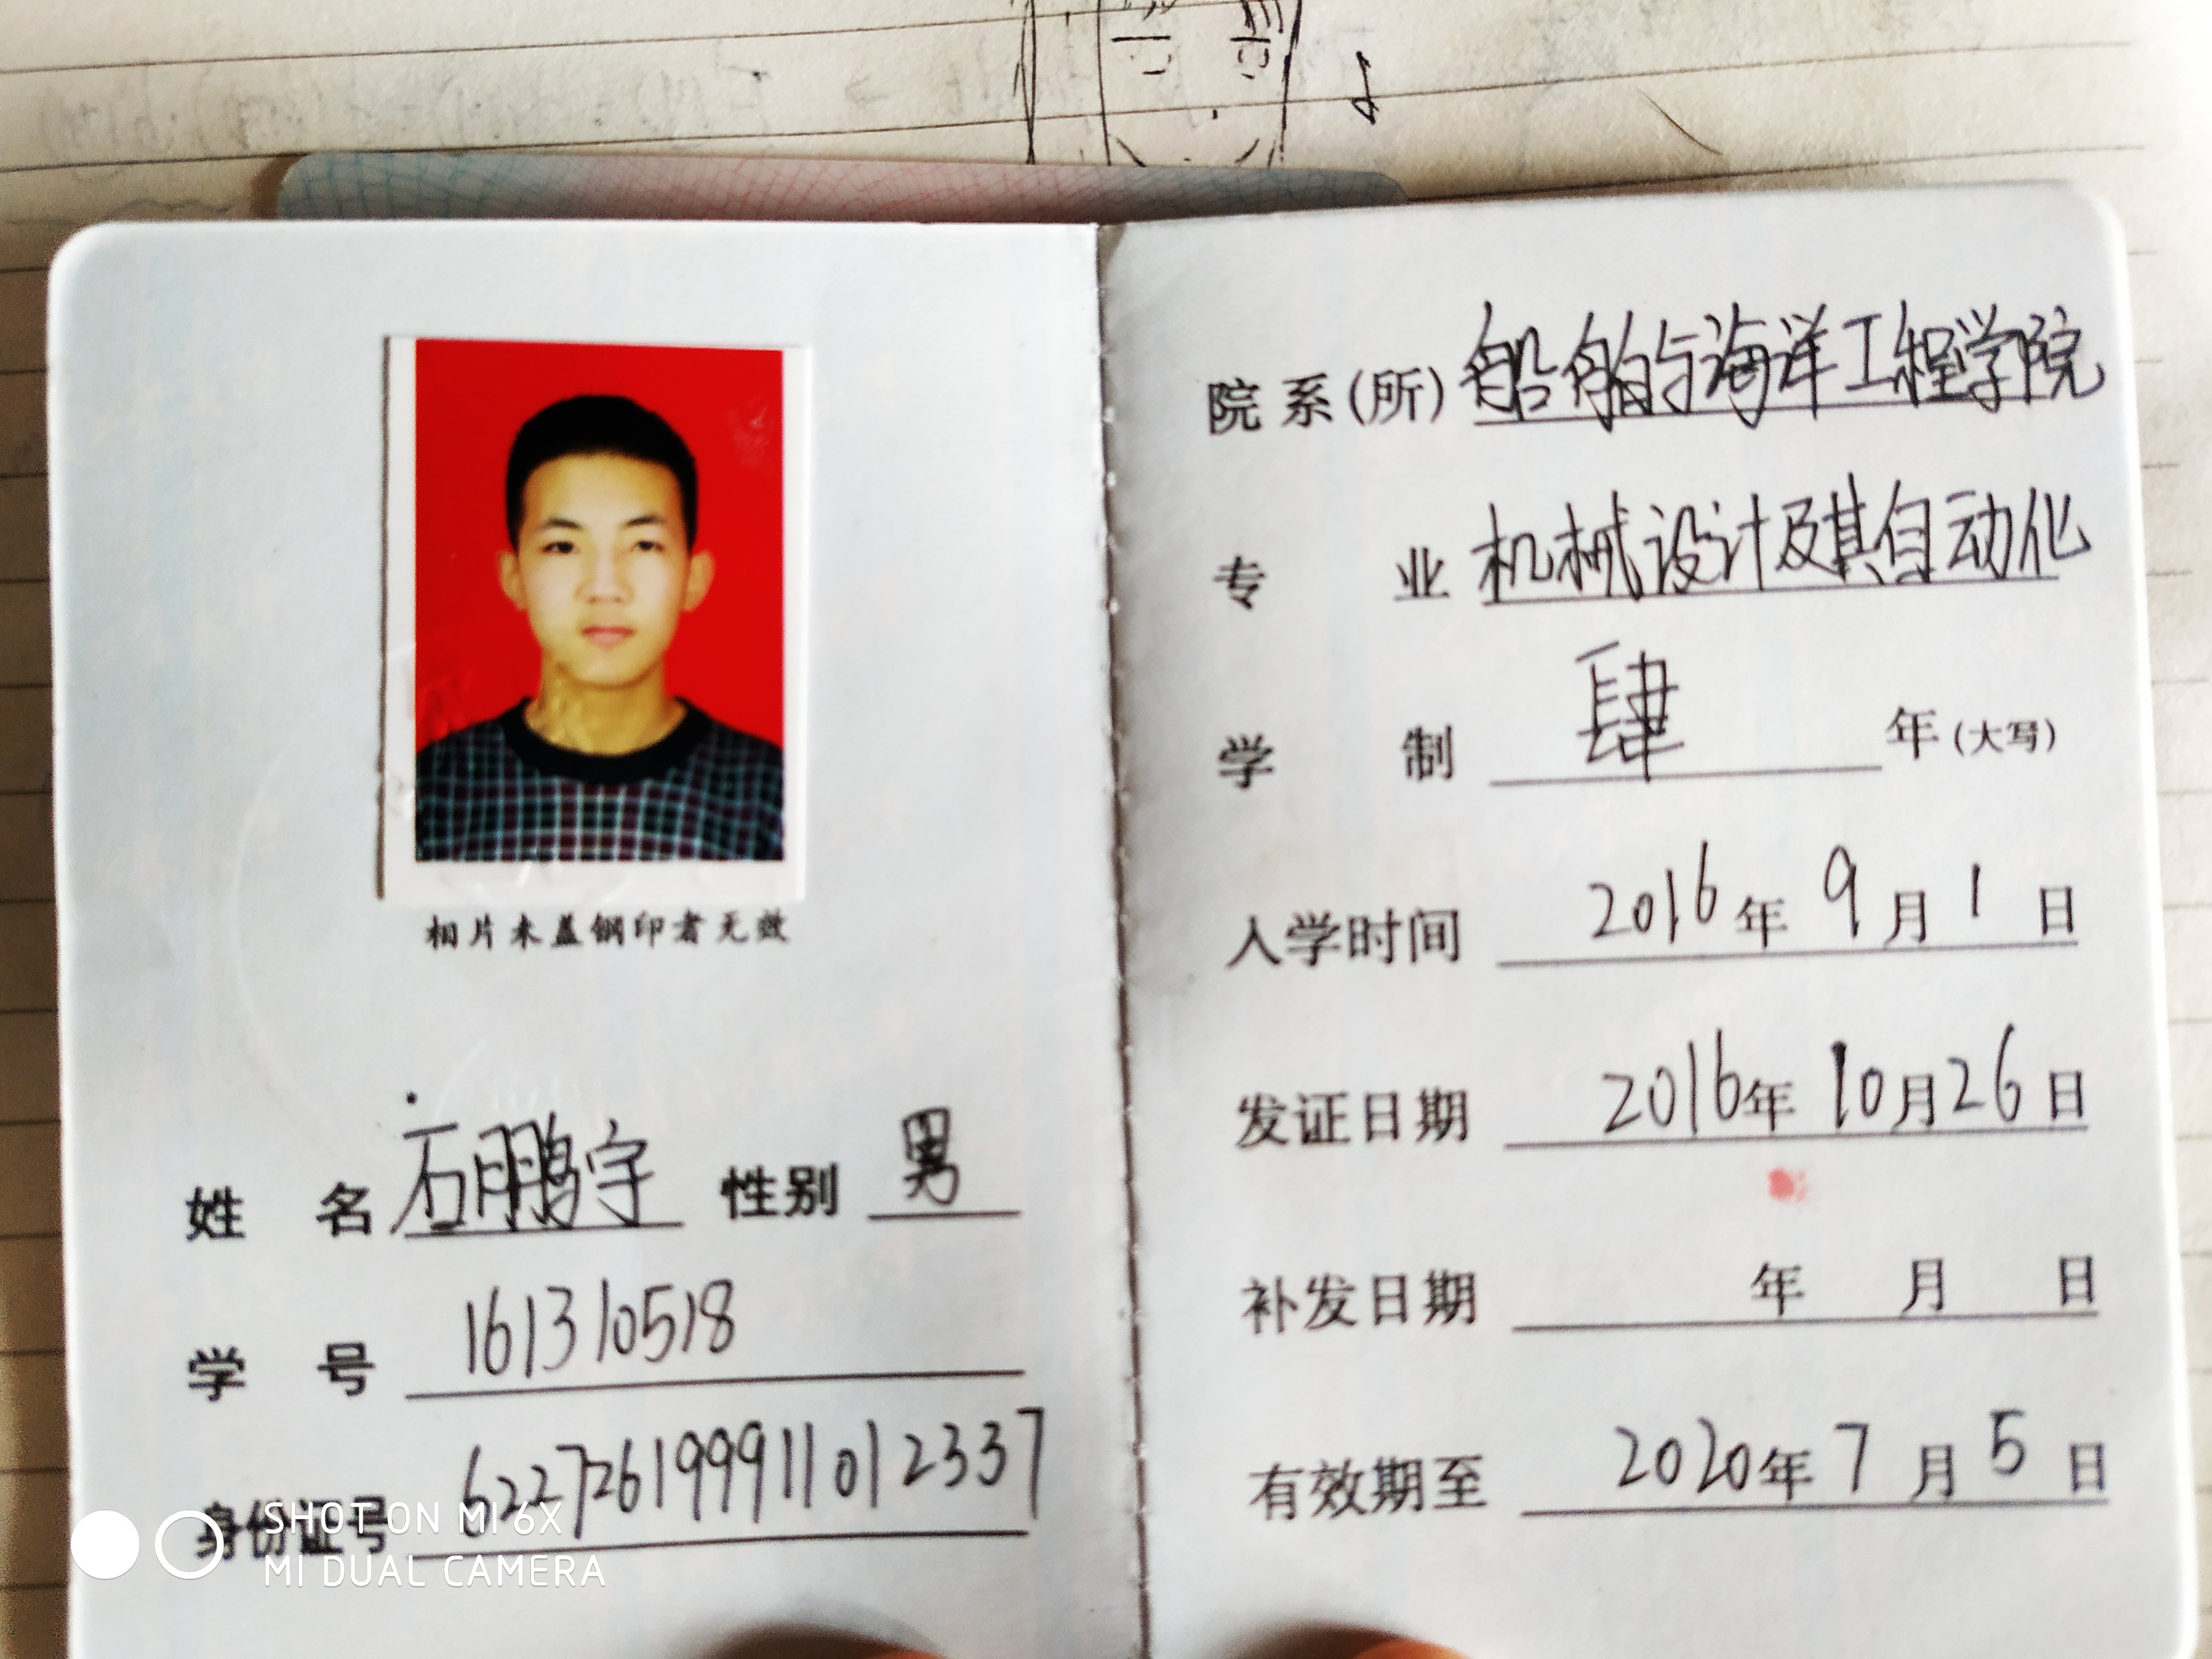 相片未盖钢印者无效
姓 名 石鹏宇 性别 男
学 号 161310518
身份证号 622726199911012337
院系(所) 船舶与海洋工程学院
专 业 机械设计及其自动化
学 制 肆 年(大写)
入学时间 2016年9月1日
发证日期 2016年10月26日
补发日期 年 月 日
有效期至 2020年7月5日
SHOT ON MI 6X
MI DUAL CAMERA